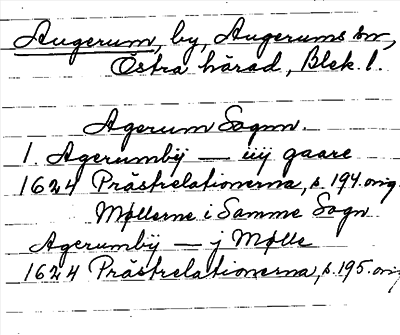 Augerum, by, Augerums sn,
Östra härad, Blek. l.
Agerum Sognn.
1. Agerumbÿ — iiij gaare
1624 Prästrelationerna, s. 194. orig.
Møllerne i Samme Sogn
Agerumbÿ — j Mølle
1624 Prästrelationerna, s. 195. orig